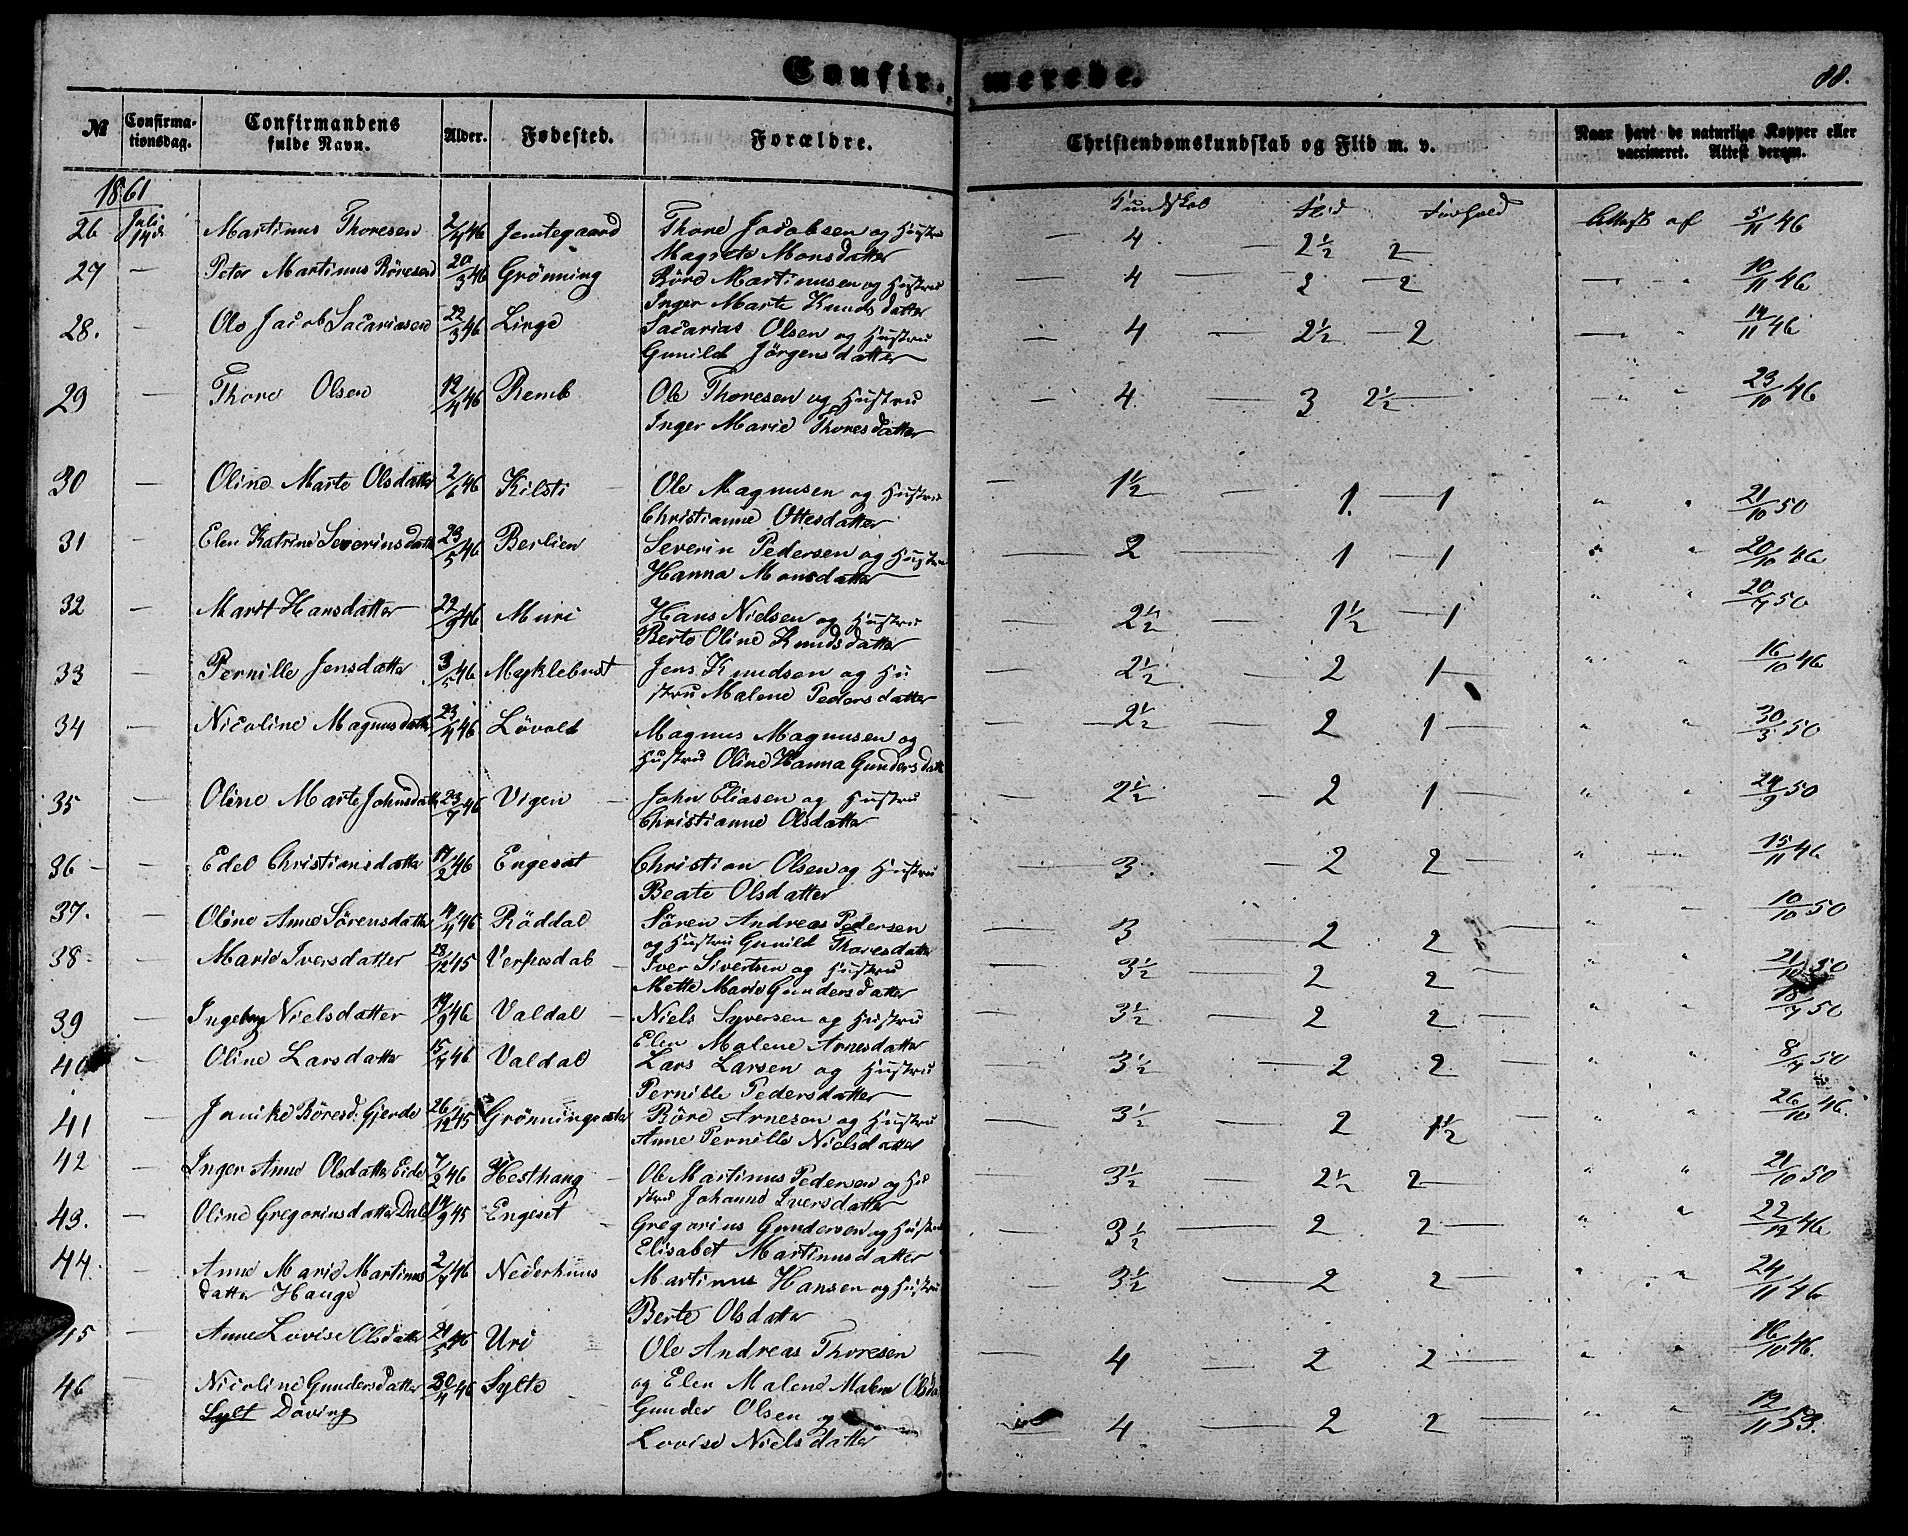 Confir- merede.
88.
№ Confirmationsdag. Confirmandens fulde Navn. Alder. Fødested. Forældre. Christendomskundskab og Flid m. v. Naar havt de naturlige Kopper eller vaccineret. Attest derom.
1861
Kundskab Flid Forhold
26 Juli 14de Martinus Thoresen 2/4 46 Jemtegaard Thore Jacobsen og Hustru — 4 — 2½ 2 Attest af 5/11 46
Magrete Monsdatter
27 — Peter Martinus Röresen 20/3 46 Grönning Röre Martinusen og Hustru — 4 — 2 — 2 — " 10/11 46
Inger Marte Knudsdatter
28. — Ole Jacob Sacariasen 22/3 46 Linge Sacarias Olsen og Hustru — 4 — 2½ — 2 — " 14/11 46
Gunild Jörgensdatter
29 — Thore Olsen 12/4 46 Remb Ole Thoresen og Hustru — 4. — 3 2½ — " " 23/10 46
Inger Marie Thoresdatter
30 — Oline Marte Olsdatter 2/6 46 Kilsti Ole Magnusen og Hustru — 1½ — 1. — 1 " " 21/10 50
Christianne Ottesdatter
31 — Elen Katrine Severinsdatt 23/5 46 Berlien Severin Pedersen og Hustru — 2 — 1 — 1 " " 20/10 46
Hanna Monsdatter
32 — Marit Hansdatter 22/9 46 Muri Hans Nielsen og Hustru — 2½ — 1½ — 1 " " 20/7 50
Berte Oline Knudsdatter
33 — Pernille Jensdatter 3/5 46 Myklebust Jens Knudsen og Hu — 2½ — 2 1 — " " 16/10 46
stru Malene Pedersdatter
34 — Nicoline Magnusdatt 23/4 46 Lövold Magnus Magnusen og — 2½ — 2 1 — " " 30/3 50
Hustru Oline Hanna Gundersdatt
35 — Oline Marte Johnsdatt 23/7 46 Vigen — John Eliasen og Hustru — 2½ — 2 1 — " " 24/9 50
Christianne Olsdatter
36 — — Edel Christiansdatter 17/2 46 Engeset Christian Olsen og Hustru — 3. — 2 2 — " " 15/11 46
Beate Olsdatter
37. — Oline Anne Sörensdatter 4/4 46 Röddal Sören Andreas Pedersen — 3 — 2 2 — " — 10/10 50
og Hustru Gunild Thoresdatter
38 — — Marie Iversdatter 28/12 45 Verpesdal — Iver Sivertsen og Hustru — 3½ — 2 2 — " " 21/10 50
Mette Marie Gundersdatter
39 — Ingeborg Nielsdatter 19/9 46 Valdal — Niels Syversen og Hustru — 3½ — 2 2 — " " 18/7 50
Elen Malene Arnesdatter
40 — Oline Larsdatter 15/4 46 Valdal Lars Larsen og Hustru — 3½ — 2 2. — " " 8/7 50
Pernille Pedersdatter
41 — Jenike Röresd. Gjerde 26/12 45 Grönningsæter Röre Arnesen og Hustru — 3½ — 2 1½ " " 26/10 46.
Anne Pernille Nielsdatter
42 — Inger Anne Olsdatter Eide 7/2 46 Hesthang — Ole Martinus Pedersen og Hu — 3½ — 2½ 2 — " " 21/10 50
stru Johanne Iversdatter
43. — Oline Gregoriusdatter Dale 14/9 45 Engeset — Gregorius Gundersen og Hustru — 3½ — 2 2 — " " 22/12 46
Elisabet Martinusdatter
44. — Anne Marie Martinus 2/7 46 Nederhuus Martinus Hansen og Hustru — 3½ — 2 2 — " " 24/11 46
datter Hauge Berte Olsdatter
45 — Anne Lovise Olsdatter 21/5 46 Uri Ole Andreas Thoresen — 4 — 2 2 — " " 16/10 46.
46 — Nicoline Gundersdatter 30/4 46 Sylte og Elen Malene Olsda
Sylt Döving Gunder Olsen og — 4 — 2 2 — " " 12/11 53.
Lovise Nielsdatter